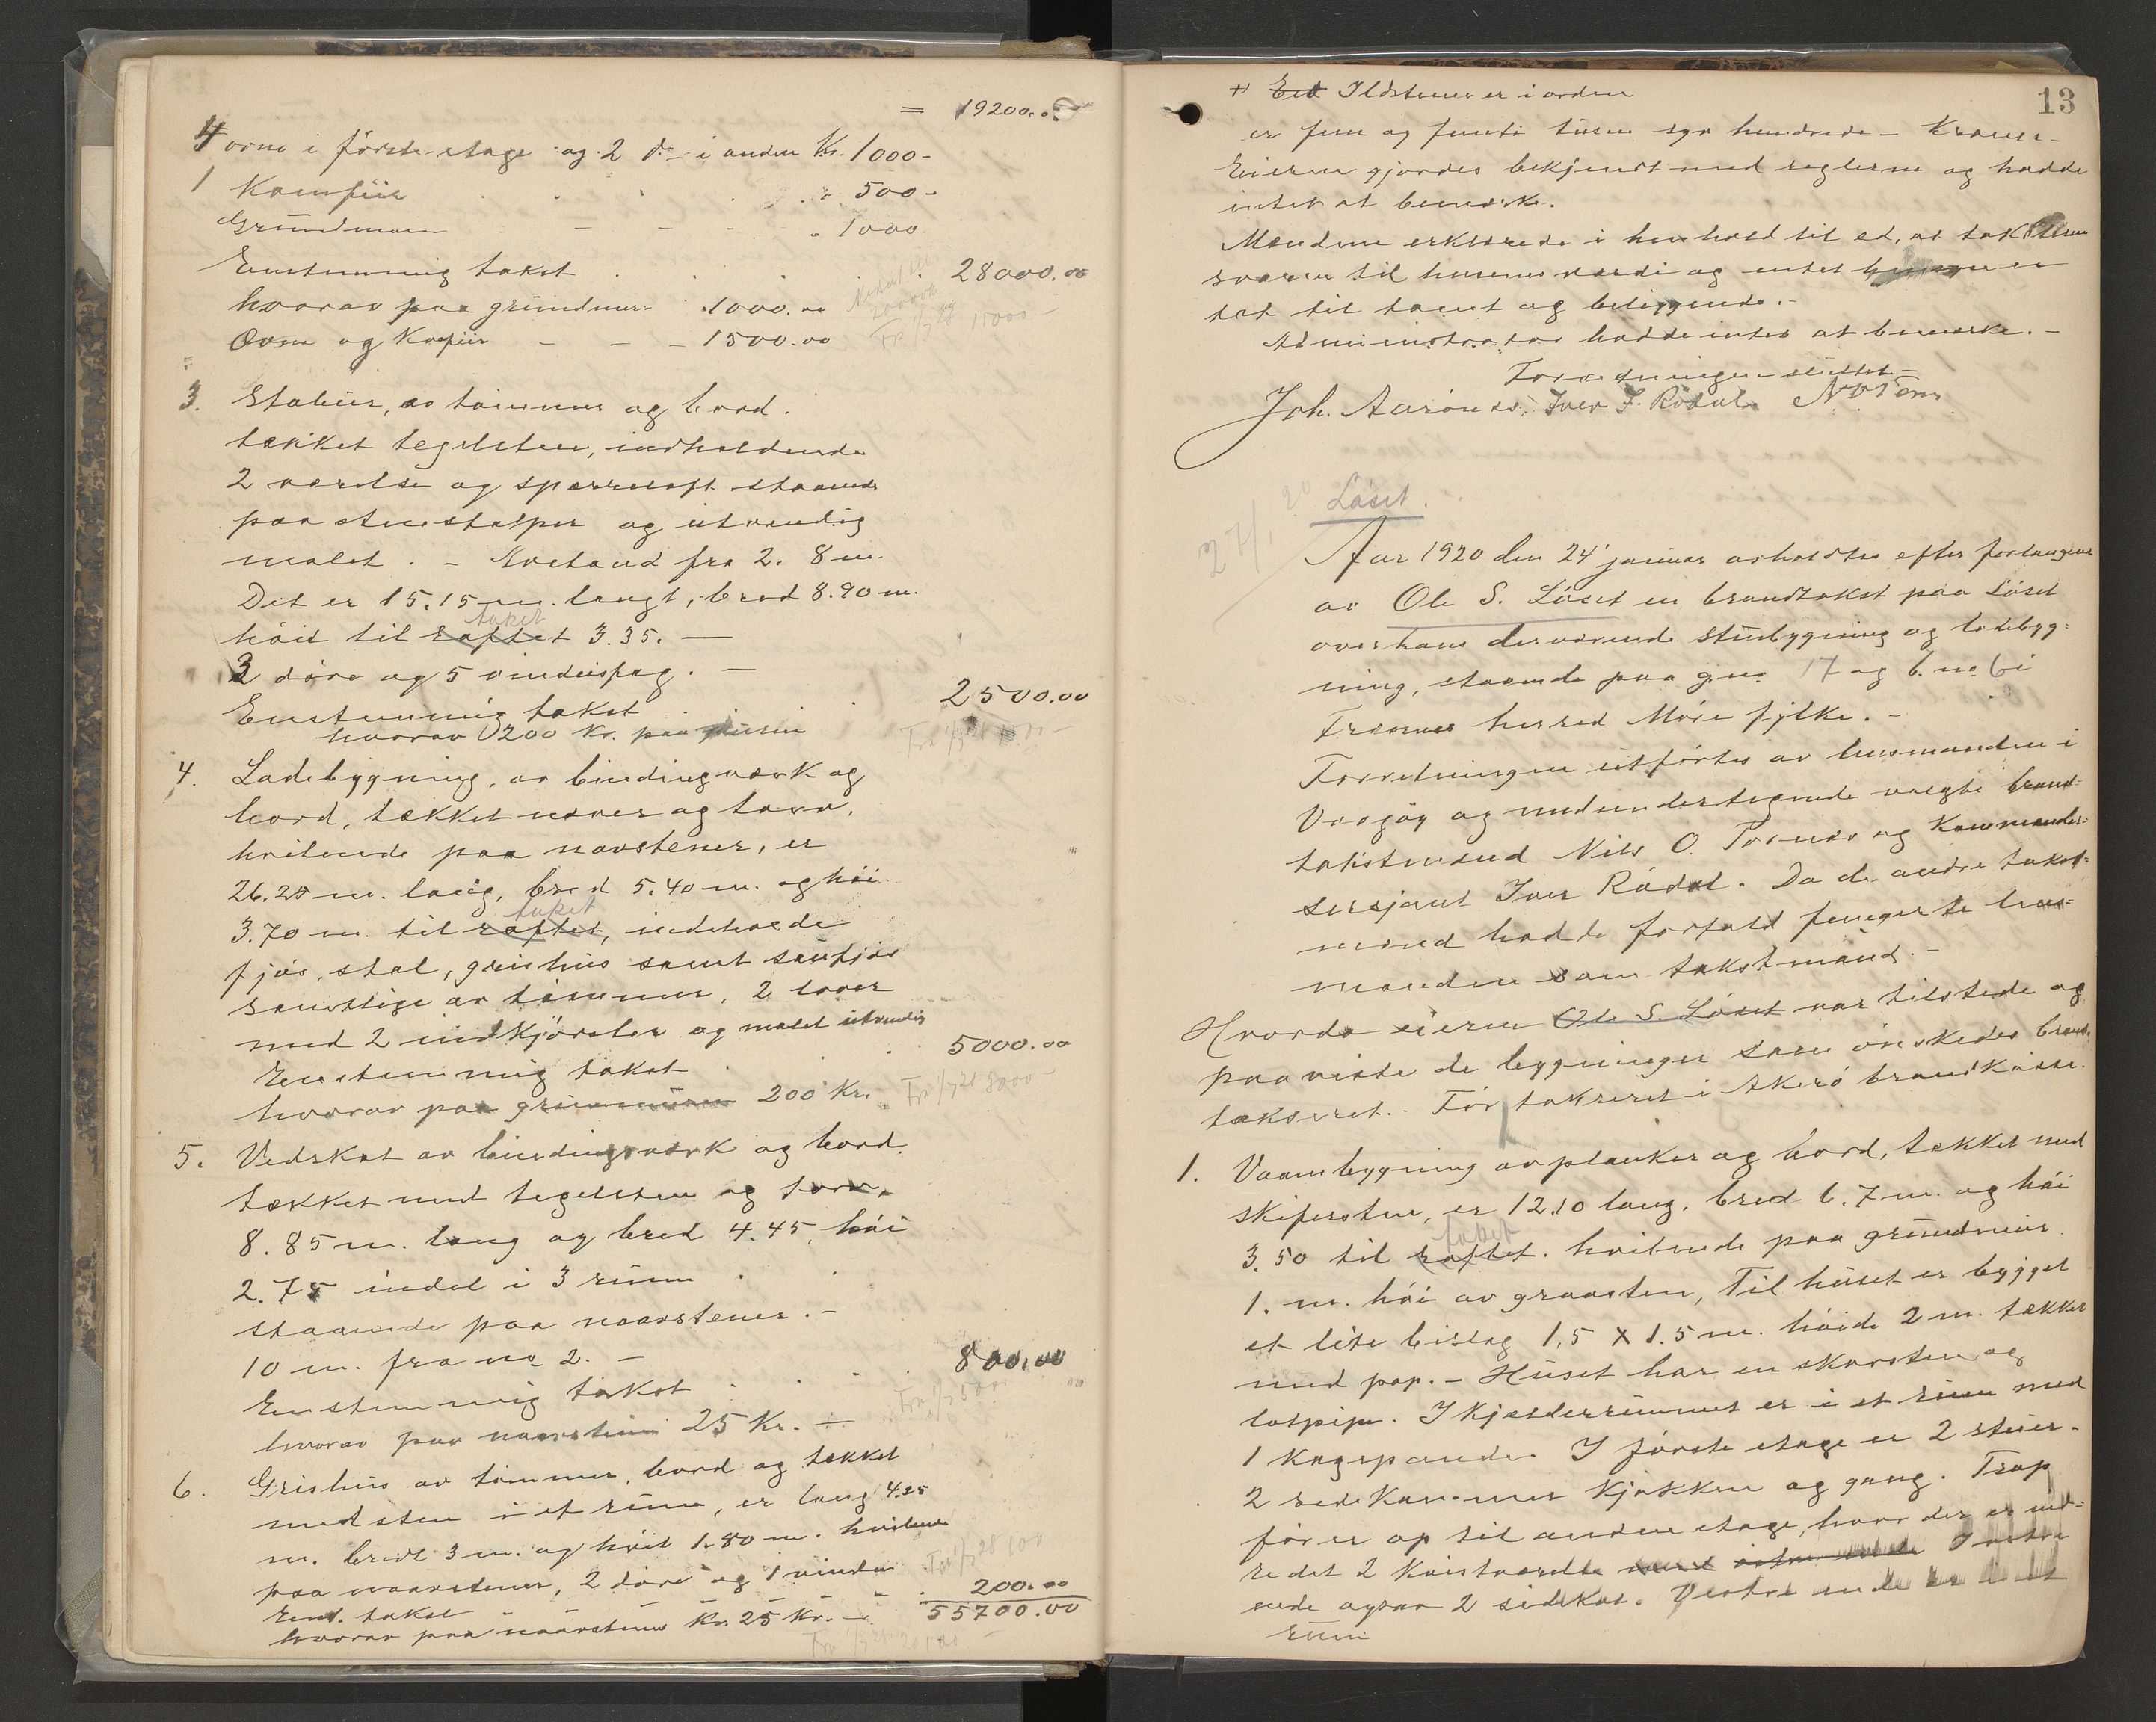 = 19200.00
4 ovne i første etage og 2 do i anden Kr. 1000-
1 Komfûr 500-
Grûndmuren 1000
Enstemmig takst 28000.00
hvorav paa grûndmur 1000.00
Ovne og Komfûr - - - 1500.00
3. Stabûr, av tømmer og bord.
tækket tegelsten, indholdende
2 værelse og sperreloft staaende
paa stenstolper og ûtvendig
malet. - Avstand fra 2. 8 m.
Det er 15.15 m. langt, bred 8.90 m.
høit til raftet taket 3.35. -
2 døre og 5 vindûsfag. -
Enstemmig takst 2500.00
hvorav 200 Kr. paa
4. Ladebygning, av bindingsverk og
bord, tækket næver og torv,
hvilende paa navstener, er
26.20 m. lang, bred 5.40 m. og høi
3.70 m. til raftet taket, indeholde
fjøs, stal, grishûs samt saûfjøs
samtlige av tømmer, 2 løer
med 2 indkjørsler og malet ûtvendig
Enstemmig takst 5000.00
hvorav paa 200 Kr.
5. Vedskot av bindingsverk og bord.
tækket med tegelsten og torv,
8.85 m. lang og bred 4.45, høi
2.75 indel i 3 rûm
staaende paa naavstener. -
10 m. fra no 2. -
Enstemmig takst 800.00
hvorav paa naavstene 25 Kr. -
6. Grishûs av tømmer, bord og tækket
med sten i et rûm, er lang 4.25
m. bredt 3 m. og høit 1.80 m. hvilende
paa naavstener, 2 døre og 1 vindû
Enst. takst 200.00
hvorav paa naavstene Kr. 25 Kr. - 55700.00
13
+) Ildstener er i orden
er fem og femti tusen syv hundrede - Kroner -
Eieren gjordes bekjendt med reglerne og hadde
intet at bemerke.
Mændene erklærede i henhold til ed, at taksterne
svarer til husenes værdi og intet hensyn er
tat til tomt og beliggende. -
Administrator hadde intet at bemerke. -
Forretningen slûttet -
Joh. Aarønæs. Iver J. Rødal.
Løset.
Aar 1920 den 24' janûar avholdtes efter forlangende
av Ole S. Løset en brandtakst paa Løset
over hans derværende stûebygning og ladebyg-
ning, staaende paa g.no 17 og b.no 6 i
Frænes herred Møre fylke. -
Forretningen ûtførtes av lensmanden i
Vaagøy og medûndertegnede valgte brand-
takstmænd Nils O. Tornes og Kommander-
sersjant Iver Rødal. Da de andre takst-
mænd hadde forfald fungerte lens-
manden som takstmand. -
Hvorda eieren Ole S. Løset var tilstede og
paaviste de bygninger som ønskedes brand-
takseret. - Før takseret i Akerø brandkasse.
1. Vaanbygning av planker og bord, tækket med
skifersten, er 12.10 lang, bred 6.7 m. og høi
3.50 til raftet taket. hvilende paa grûndmûr
1. m. høi av graasten, Til hûset er bygget
et lite bislag 1.5 x 1.5 m. høide 2 m. tækket
med pap. - Hûset har en skorsten og
løspipe. I kjelderrûmmet er i et rûm med
1 bagepande. I første etage er 2 stûer -
2 sedekammer kjøkken og gang. Trap
fører op til anden etage, hvor der er ind-
redet 2 kvistværelse I østre
ende ogsaa 2 sideskot. Vestre ende er i et
rûm